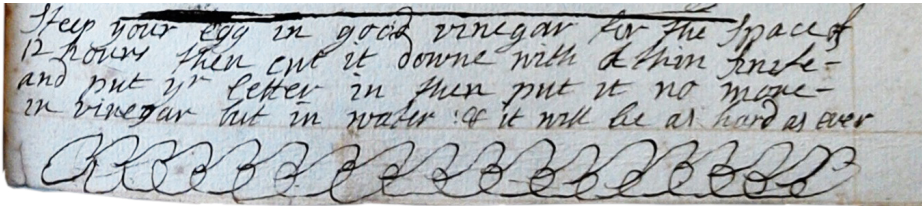 Steep your egg in good vinegar for the space of
12 hours then cut it downe with a thin knife -
and put yr letter in then put it no more -
in vinegar but in water & it will be as hard as ever